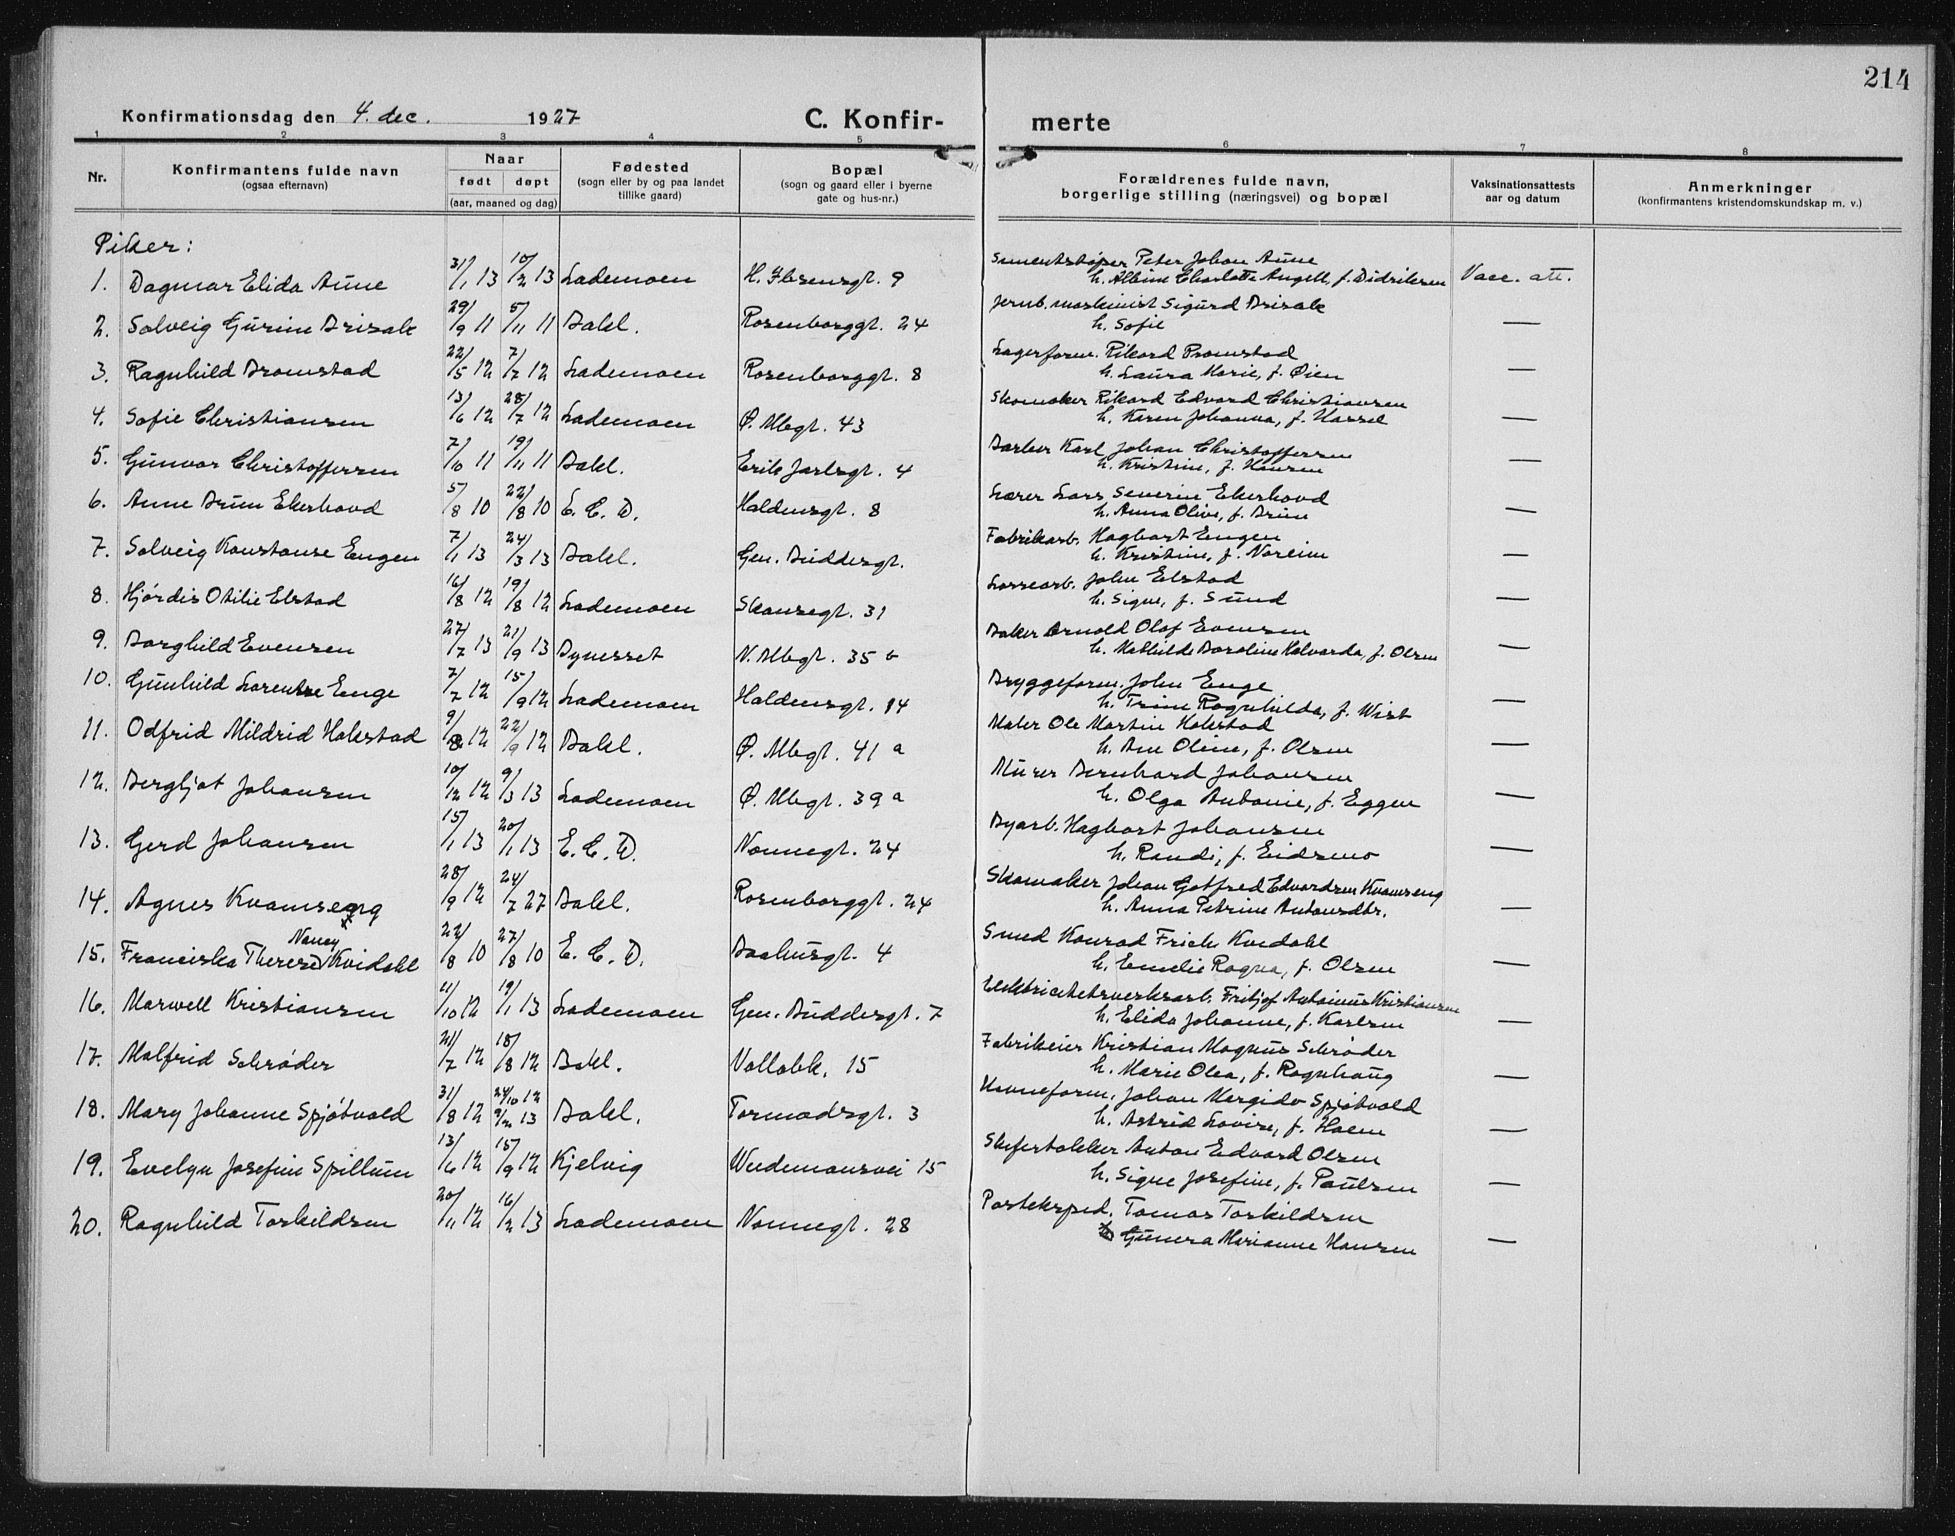 214
Konfirmationsdag den 4. dec. 1927 C. Konfir- merte
1 2 3 4 5 6 7 8
Nr. Konfirmantens fulde navn (ogsaa efternavn) Naar født døpt (aar, maaned og dag) Fødested (sogn eller by og paa landet tillike gaard) Bopæl (sogn og gaard eller i byerne gate og hus-nr.) Forældrenes fulde navn, borgerlige stilling (næringsvei) og bopæl Vaksinationsattests aar og datum Anmerkninger (konfirmantens kristendomskundskap m. v.)
Piker:
1. Dagmar Elida Aune 31/1 13 10/2 13 Lademoen H. Ibsensgt. 9 Sementstøper Peter Johan Aune
h. Albine Charlotte Angell, f. Didriksen Vacc. att.
2. Solveig Gurine Brisak 29/9 11 5/11 11 Bakl. Rosenborggt. 24 Jernb. maskinist Sigurd Brisak
h. Sofie —
3. Ragnhild Bromstad 22/5 12 7/7 12 Lademoen Rosenborggt. 8 Lagerform. Rikard Bromstad
h. Laura Marie, f. Øien —
4. Sofie Christiansen 13/6 12 28/7 12 Lademoen Ø. Mbgt. 43 Skomaker Rikard Edvard Christiansen
h. Karen Johanna, f. Hassel —
5. Gunvor Christoffersen 7/10 11 19/11 11 Bakl. Erik Jarlsgt. 4 Barber Karl Johan Christoffersen
h. Kristine, f. Hansen —
6. Anne Bruun Ekerhovd 5/8 10 22/8 10 E. C. D. Haldensgt. 8 Lærer Lars Severin Ekerhovd
h. Anna Olive, f. Bruun —
7. Solveig Konstanse Engen 7/1 13 24/3 13 Bakl. Gen. Buddesgt. Fabrikarb. Hagbart Engen
h. Kristine, f. Noreim —
8. Hjørdis Otilie Elstad 16/8 12 19/8 12 Lademoen Skansegt. 31 Lossearb. John Elstad
h. Signe, f. Sund —
9. Borghild Evensen 27/7 13 21/9 13 Bynesset N. Mbgt. 35 b Baker Arnold Olaf Evensen
h. Mathilde Baroline Halvarda, f. Olsen —
10. Gunhild Lorentse Enge 7/7 12 15/9 12 Lademoen Haldensgt. 14 Bryggeform. John Enge
h. Trine Ragnhilda, f. Wist —
11. Odfrid Mildrid Hakstad 9/8 12 22/9 12 Bakl. Ø. Mbgt. 41 a Maler Ole Martin Hakstad
h. Ane Oline, f. Olsen —
12. Bergljot Johansen 10/12 12 9/3 13 Lademoen Ø. Mbgt. 39 a Murer Bernhard Johansen
h. Olga Antonie, f. Eggen —
13. Gerd Johansen 15/1 13 20/1 13 E. C. D. Nonnegt. 24 Byarb. Hagbart Johansen
h. Randi, f. Eidsmo —
14. Agnes Kvamseng 28/9 12 24/7 27 Bakl. Rosenborggt. 24 Skomaker Johan Gotfred Edvardsen Kvamseng
h. Anna Petrine Antonsdtr. —
Nancy
15. Franciska Therese Kvidahl 22/8 10 27/8 10 E. C. D. Baahusgt. 4 Smed Konrad Frich Kvidahl
h. Emelie Ragna, f. Olsen —
16. Marwell Kristiansen 11/10 12 19/1 13 Lademoen Gen. Buddesgt. 7 Elektricitetsverksarb. Fritjof Antonius Kristiansen
h. Elida Johanne, f. Karlsen —
17. Malfrid Schrøder 21/7 12 18/8 12 Bakl. Vollabk. 15 Fabrikeier Kristian Magnus Schrøder
h. Marie Olea, f. Ragnhaug —
18. Mary Johanne Spjøtvold 31/8 12 24/10 12 9/2 13 Bakl. Tormodsgt. 3 Havneform. Johan Mergido Spjøtvold
h. Astrid Lovise, f. Haem —
19. Evelyn Josefine Spillum 13/6 12 15/9 12 Kjelvig Weidemansvei 15 Skifertekker Anton Edvard Olsen
h. Signe Josefine, f. Paulsen —
20. Ragnhild Torkildsen 20/11 12 16/2 13 Lademoen Nonnegt. 28 Posteksped. Tomas Torkildsen
Gunera Marianne Hansen —